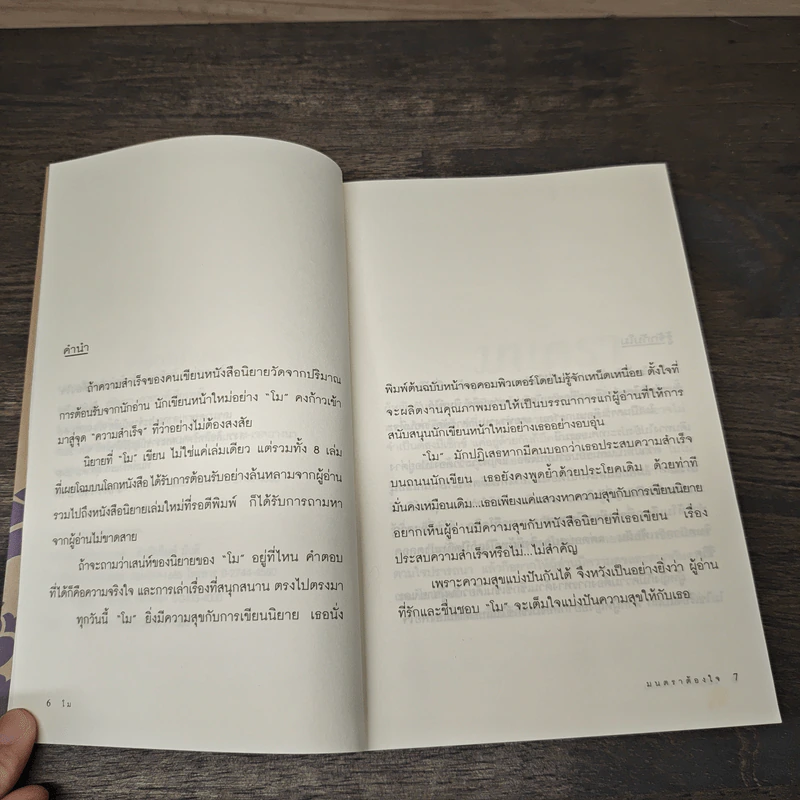 คำนำ
ถ้าความสำเร็จของคนเขียนหนังสือนิยายวัดจากปริมาณ
การต้อนรับจากนักอ่าน นักเขียนหน้าใหม่อย่าง "โม" คงก้าวเข้า
มาสู่จุด "ความสำเร็จ" ที่ว่าอย่างไม่ต้องสงสัย
นิยายที่ "โม" เขียน ไม่ใช่แค่เล่มเดียว แต่รวมทั้ง 8 เล่ม
ที่เผยโฉมบนโลกหนังสือ ได้รับการต้อนรับอย่างล้นหลามจากผู้อ่าน
รวมไปถึงหนังสือนิยายเล่มใหม่ที่รอตีพิมพ์ ก็ได้รับการถามหา
จากผู้อ่านไม่ขาดสาย
ถ้าจะถามว่าเสน่ห์ของนิยายของ "โม" อยู่ที่ไหน คำตอบ
ที่ได้ก็คือความจริงใจ และการเล่าเรื่องที่สนุกสนาน ตรงไปตรงมา
ทุกวันนี้ "โม" ยิ่งมีความสุขกับการเขียนนิยาย เธอนั่ง
6 โม
พิมพ์ต้นฉบับหน้าจอคอมพิวเตอร์โดยไม่รู้จักเหน็ดเหนื่อย ตั้งใจที่
จะผลิตงานคุณภาพมอบให้เป็นบรรณาการแก่ผู้อ่านที่ให้การ
สนับสนุนนักเขียนหน้าใหม่อย่างเธออย่างอบอุ่น
"โม" มักปฏิเสธหากมีคนบอกว่าเธอประสบความสำเร็จ
บนถนนนักเขียน เธอยังคงพูดย้ำด้วยประโยคเดิม ด้วยท่าที
มั่นคงเหมือนเดิม...เธอเพียงแค่แสวงหาความสุขกับการเขียนนิยาย
อยากเห็นผู้อ่านมีความสุขกับหนังสือนิยายที่เธอเขียน เรื่อง
ประสบความสำเร็จหรือไม่...ไม่สำคัญ
เพราะความสุขแบ่งปันกันได้ จึงหวังเป็นอย่างยิ่งว่า ผู้อ่าน
ที่รักและชื่นชอบ "โม" จะเต็มใจแบ่งปันความสุขให้กับเธอ
มนตราต้องใจ 7